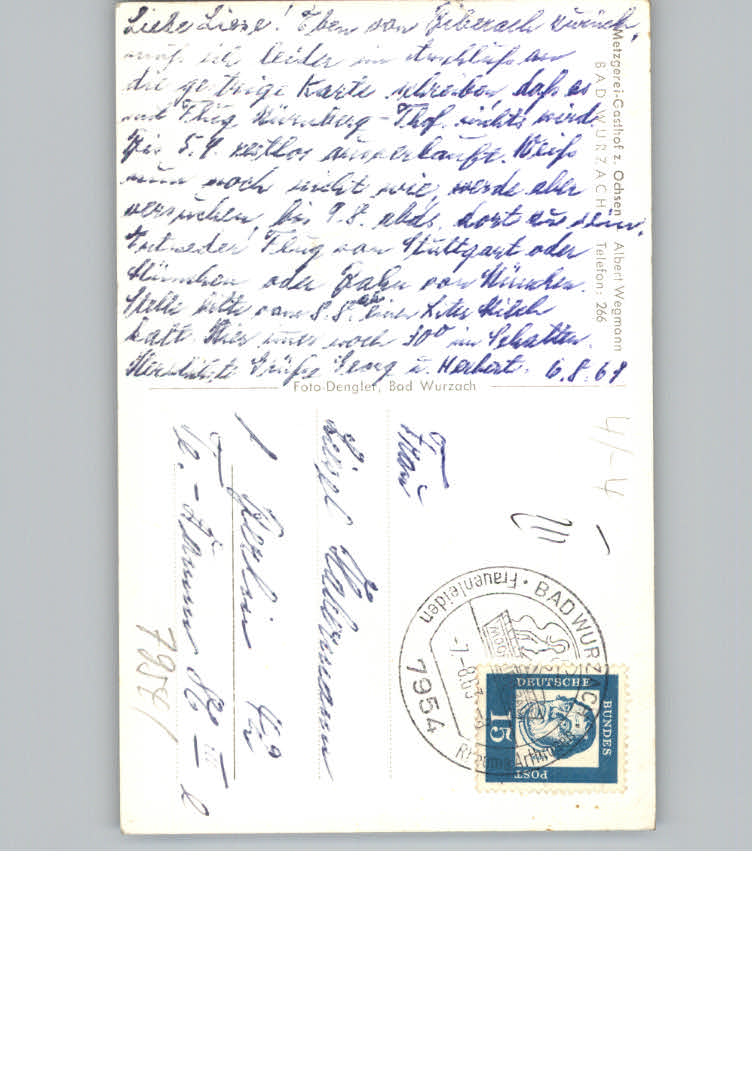 Liebe Liesel! Eben von Biberach zurück,
muß ich leider im Anschluß an
die gestrige Karte schreiben, daß es
mit Flug Nürnberg - Thof. nichts wird.
Bis 5.9. restlos ausverkauft. Weiß
nun noch nicht wie, werde aber
versuchen, bis 9.8. abds. dort zu sein.
Entweder Flug von Stuttgart oder
München oder Bahn von München.
Stelle bitte vom 8.8. ab einen Liter Milch
kalt. Hier immer noch 30° im Schatten.
Herzlichste Grüße Georg u. Herbert. 6.8.69
Metzgerei-Gasthof z. Ochsen Albert Wegmann
BAD WURZACH Telefon: 266
Foto-Dengler, Bad Wurzach
Frau
Liesel
1 Berlin 42
7954
4/-4
BAD WURZACH
Frauenleiden
7954
-7.-8.69
DEUTSCHE
BUNDES
POST
15